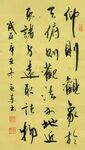 仰則觀象於
天俯觀法於地近
取諸身遠取諸物